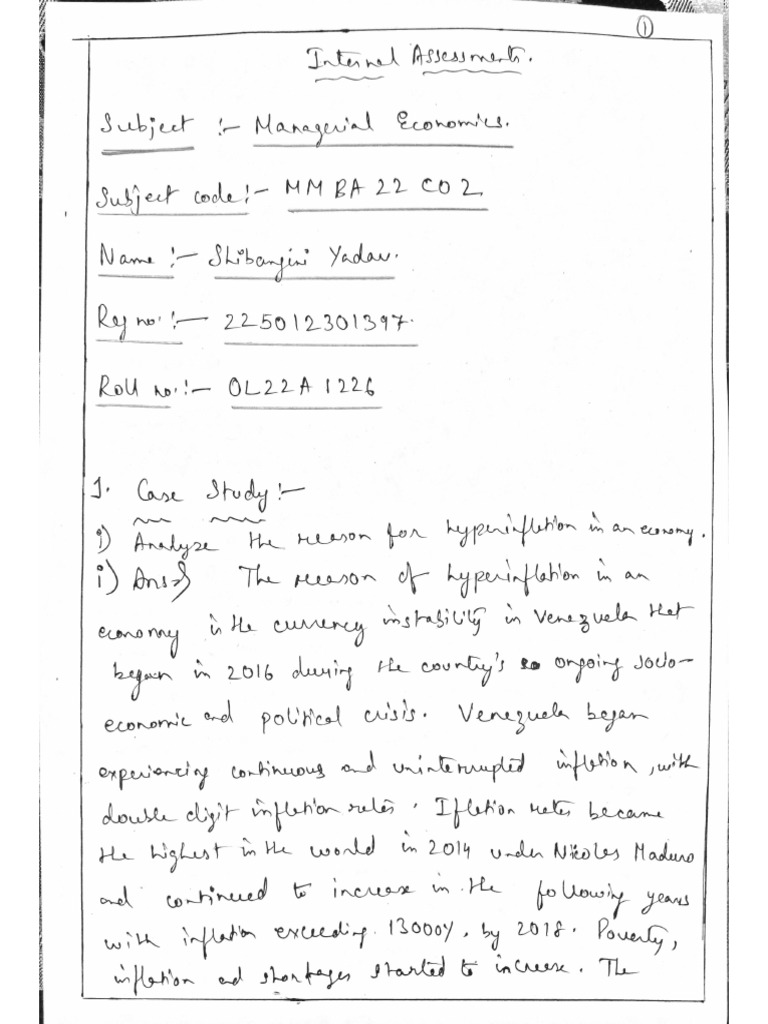 ①
Internal Assessments.
Subject :- Managerial Economics.
Subject code:- MMBA22CO2
Name :- Shibangini Yadav.
Reg no. :- 225012301397.
Roll no. :- OL22A1226
1. Case Study :-
i) Analyze the reason for hyperinfletion in an economy.
i) Ans⇒ The reason of hyperinflation in an
economy is the currency instability in Venezuela that
began in 2016 during the country's so ongoing socio-
economic and political crisis. Venezuela began
experiencing continuous and uninterrupted inflation, with
double digit infletion rates. Ifletion rates became
the highest in the world in 2014 under Nicoles Maduro
and continued to increase in the following years
with inflation exceeding 13000%, by 2018. Poverty,
inflation and shortages started to increase. The